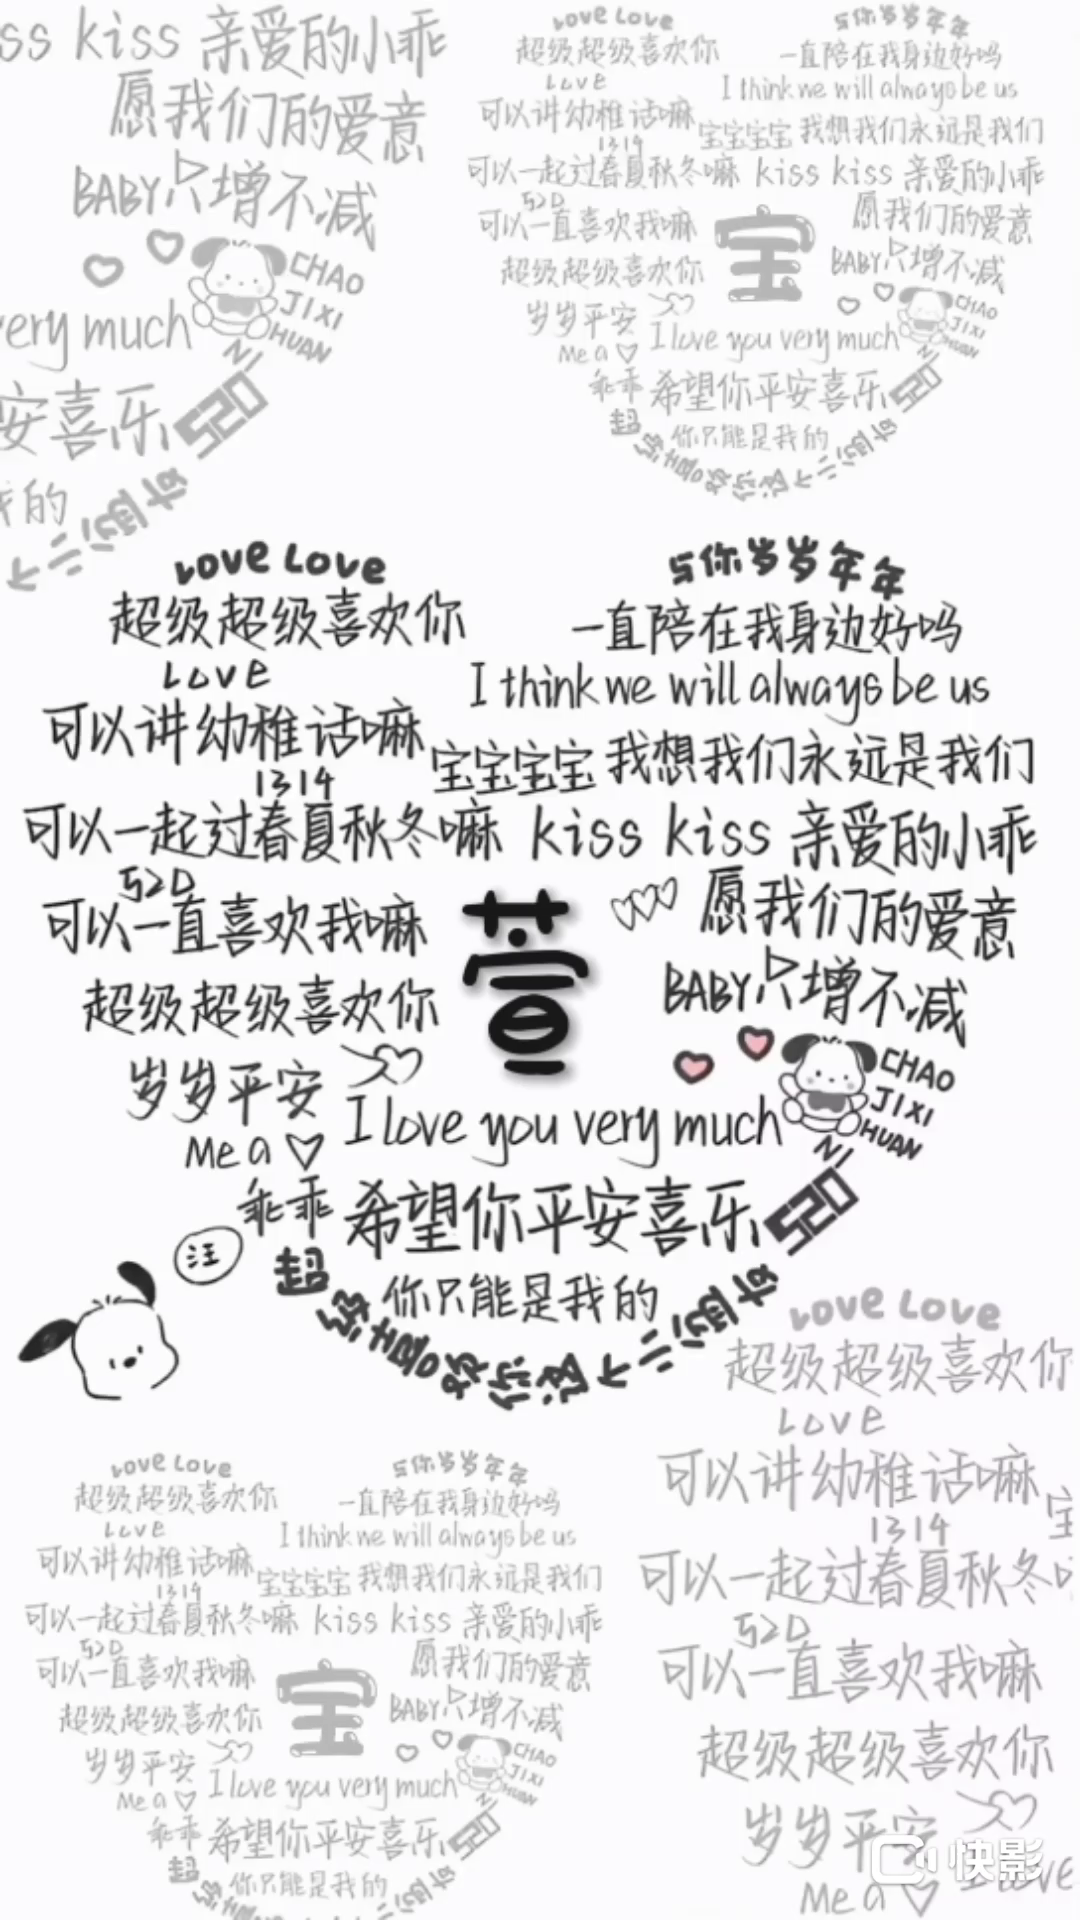 ss kiss 亲爱的小乖
愿我们的爱意
BABY只增不减
CHAO
JIXI
HUAN
NI
very much
安喜乐
520
我的
不二的可
Love Love
与你岁岁年年
超级超级喜欢你
一直陪在我身边好吗
Love
I think we will always be us
可以讲幼稚话嘛
宝宝宝宝 我想我们永远是我们
1314
可以一起过春夏秋冬嘛 kiss kiss 亲爱的小乖
520
可以一直喜欢我嘛
愿我们的爱意
宝
超级超级喜欢你
BABY只增不减
岁岁平安
CHAO
JIXI
HUAN
NI
Me a
I love you very much
乖乖 希望你平安喜乐
520
你只能是我的
Love Love
与你岁岁年年
超级超级喜欢你
一直陪在我身边好吗
Love
I think we will always be us
可以讲幼稚话嘛
宝宝宝宝 我想我们永远是我们
1314
可以一起过春夏秋冬嘛 kiss kiss 亲爱的小乖
520
可以一直喜欢我嘛
愿我们的爱意
萱
超级超级喜欢你
BABY只增不减
岁岁平安
CHAO
JIXI
HUAN
NI
Me a
I love you very much
乖乖 希望你平安喜乐
520
汪
你只能是我的
超级喜欢你这个二
Love Love
超级超级喜欢你
Love
可以讲幼稚话嘛
宝
1314
可以一起过春夏秋冬
520
可以一直喜欢我嘛
超级超级喜欢你
岁岁平安
Me a
I love
Love Love
与你岁岁年年
超级超级喜欢你
一直陪在我身边好吗
Love
I think we will always be us
可以讲幼稚话嘛
宝宝宝宝 我想我们永远是我们
1314
可以一起过春夏秋冬嘛 kiss kiss 亲爱的小乖
520
可以一直喜欢我嘛
愿我们的爱意
宝
超级超级喜欢你
BABY只增不减
岁岁平安
CHAO
JIXI
HUAN
NI
Me a
I love you very much
乖乖 希望你平安喜乐
520
你只能是我的
快影